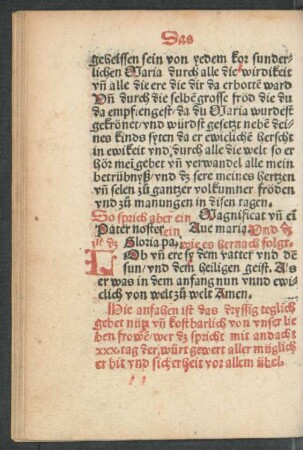 Das
geheissen sein von yedem kor sunder-
lichen Maria durch alle die wirdikeit
vñ alle die ere die dir da erbottē ward
Vñ durch die selbē grosse fröd die du
da empfiengest/da du Maria wurdest
gekrönet/vnd würdst gesetzt nebē dei-
nes kinds syten da er ewiclichē herscht
in ewikeit vnd durch alle die welt so er
hör mei gebet vñ verwandel alle mein
betrübnyß/vnd dz sere meines hertzen
vñ selen zů gantzer volkumner fröden
vnd zů manungen in disen tagen.
So sprich aber ein Magnificat vñ ei
Pater noster ein Aue maria Vnd dz
ist dz Gloria pa. wie es hernach folgt.
LOb vñ ere sy dem vatter vnd dē
sun/vnd dem heiligen geist. Als
er was in dem anfang nun vnnd ewi-
clich von welt zů welt Amen.
Hie anfahen ist das dryssig teglich
gebet nütz vñ kostbarlich von vnser lie
ben frowē wer dz spricht mit andacht
xxx. tag der würt gewert aller müglich
er bit vnd sicherheit vor allem übel.